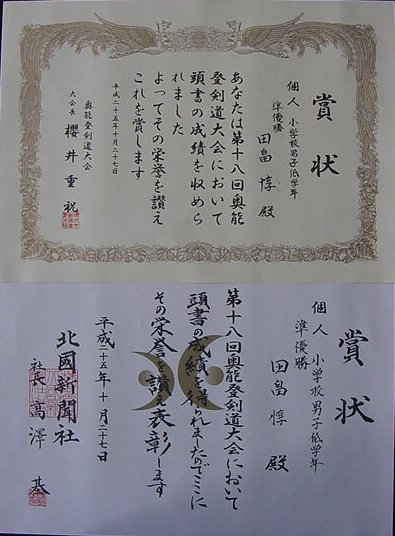 賞状
個人 小学校男子低学年
準優勝
田畠 惇 殿
あなたは第十八回奥能
登剣道大会において
頭書の成績を収めら
れました
よってその栄誉を讃え
これを賞します
平成二十五年十月二十七日
奥能登剣道大会
大会長 櫻井重祝
賞状
個人 小学校男子低学年
準優勝
田畠 惇 殿
第十八回奥能登剣道大会において
頭書の成績を得られましたのでここに
その栄誉を讃え表彰します
平成二十五年十月二十七日
北國新聞社
社長 高澤 基